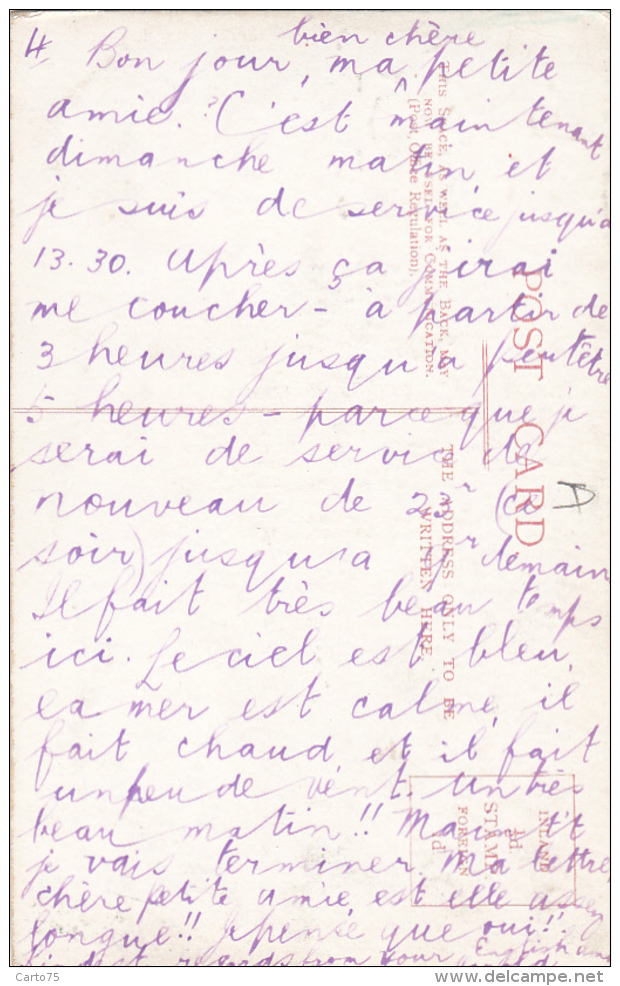 4
bien chère
Bon jour, ma ^ petite
amie. C'est maintenant
dimanche matin et
je suis de service jusqu'a
13.30. Après ça j'irai
me coucher - à partir de
3 heures jusqu'a peutêtre
5 heures - parceque je
serai de service de
nouveau de 23 (ce
soir) jusqu'a demain
Il fait très beau temps
ici. Le ciel est bleu,
la mer est calme, il
fait chaud, et il fait
unpeu de vent. Un très
beau matin!! Maint't
je vais terminer. Ma lettre,
chère petite amie est elle assez
longue!! Je pense que oui!!
regards from your English
POST CARD
THIS SPACE, AS WELL AS THE BACK, MAY
NOW BE USED FOR COMMUNICATION.
(Post Office Regulation).
THE ADDRESS ONLY TO BE
WRITTEN HERE.
INLAND
½d
STAMP
FOREIGN
1d
D
Carto75
www.delcampe.net